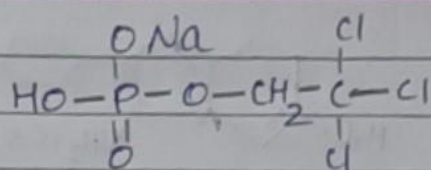 ONa Cl
HO-P-O-CH2-C-Cl
O Cl